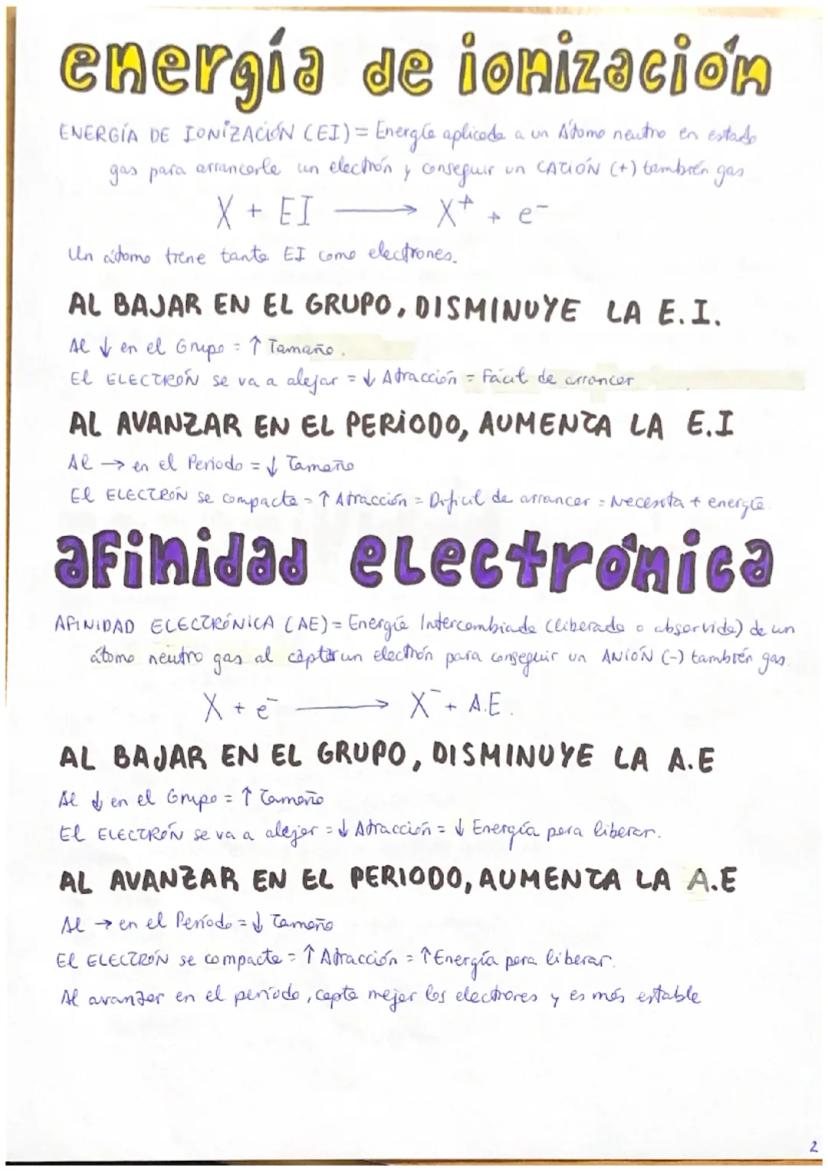 energía de ionización
ENERGÍA DE IONIZACIÓN (EI) = Energía aplicada a un Átomo neutro en estado
gas para arrancarle un electrón y conseguir un CATIÓN (+) también gas
X + EI → X⁺ + e⁻
Un átomo tiene tanta EI como electrones.
AL BAJAR EN EL GRUPO, DISMINUYE LA E.I.
Al ↓ en el Grupo = ↑ Tamaño.
El ELECTRÓN se va a alejar = ↓ Atracción = Fácil de arrancar
AL AVANZAR EN EL PERIODO, AUMENTA LA E.I
Al → en el Periodo = ↓ Tamaño
El ELECTRÓN se compacta = ↑ Atracción = Dificil de arrancar = Necesita + energía.
afinidad electrónica
AFINIDAD ELECTRÓNICA (AE) = Energía Intercambiada (liberada o absorvida) de un
átomo neutro gas al captar un electrón para conseguir un ANIÓN (-) también gas.
X + e⁻ → X⁻ + A.E.
AL BAJAR EN EL GRUPO, DISMINUYE LA A.E
Al ↓ en el Grupo = ↑ Tamaño
El ELECTRÓN se va a alejar = ↓ Atracción = ↓ Energía para liberar.
AL AVANZAR EN EL PERIODO, AUMENTA LA A.E
Al → en el Período = ↓ Tamaño
El ELECTRÓN se compacta = ↑ Atracción = ↑ Energía para liberar.
Al avanzar en el período, capta mejor los electrones y es más estable
2